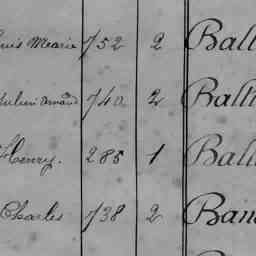 Louis Marie 752 2 Ball
Julien Armand 740 2 Ball
Henry. 285 1 Ball
Charles 738 2 Ban